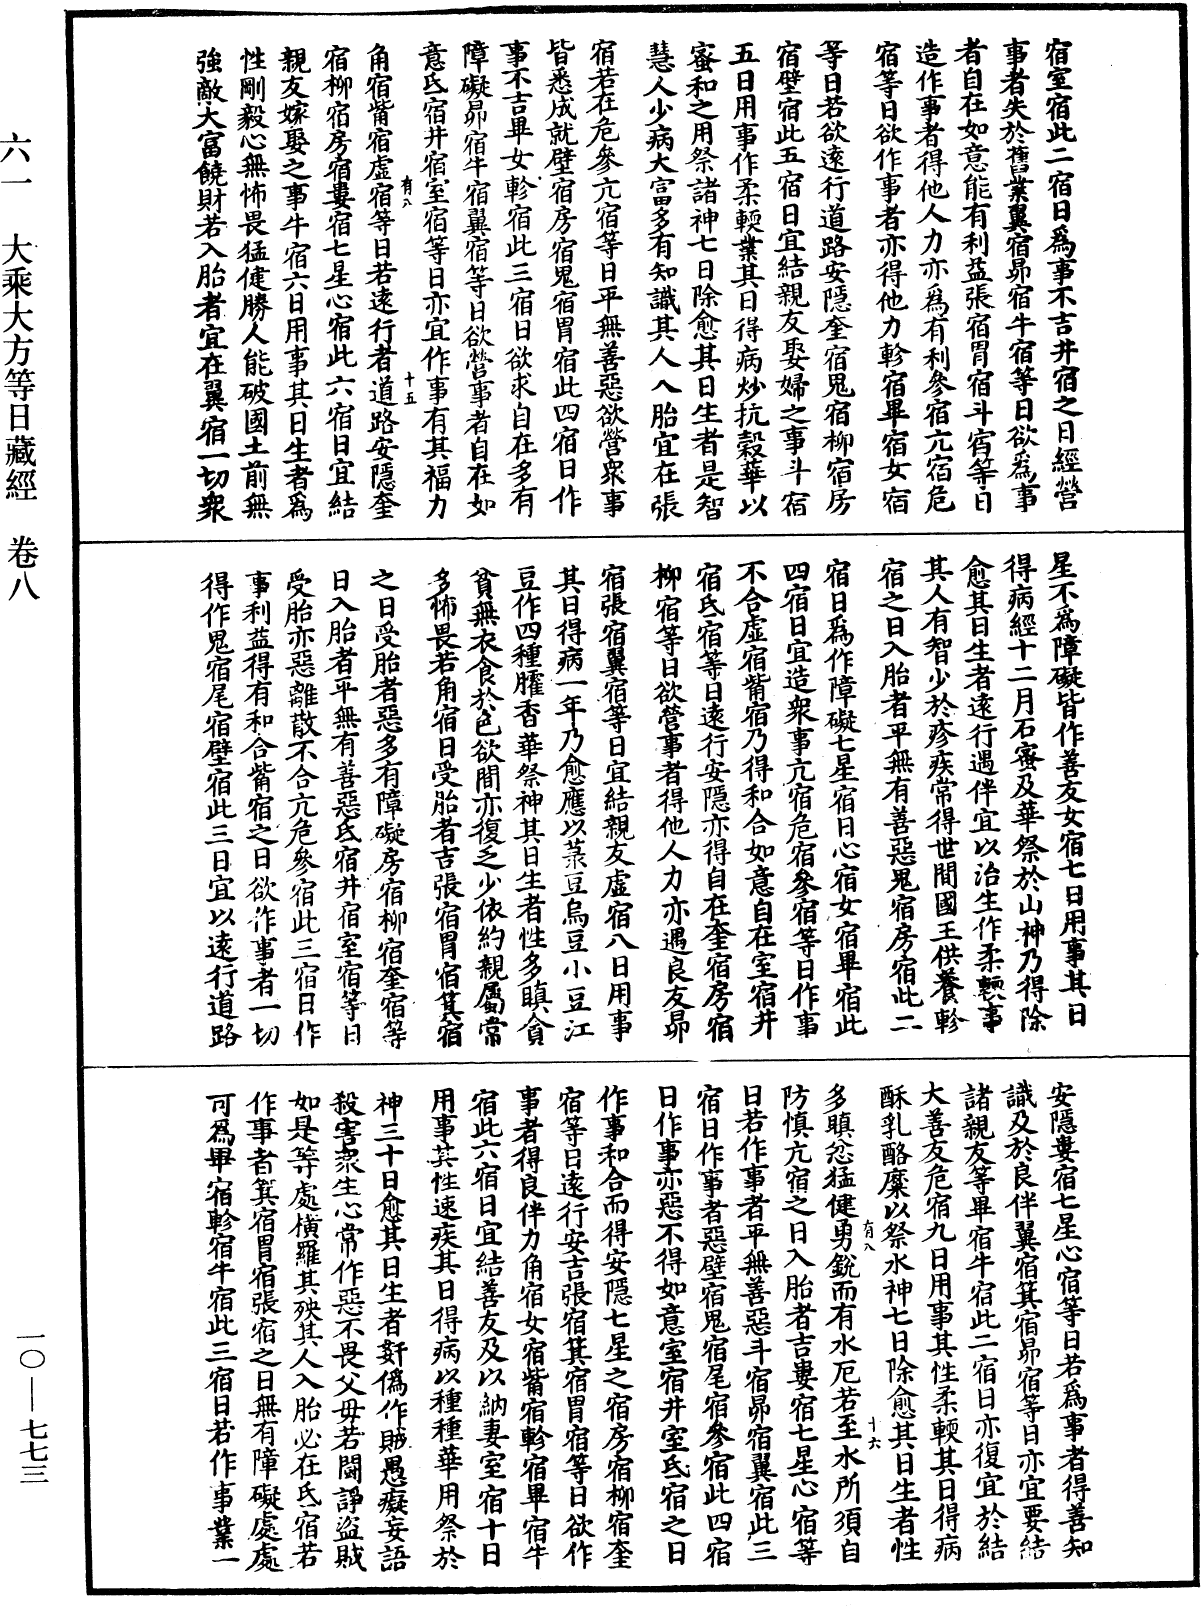 宿室宿此二宿日為事不吉井宿之日經營
事者失於舊業翼宿昴宿牛宿等日欲為事
者自在如意能有利益張宿胃宿斗宿等日
造作事者得他人力亦為有利參宿亢宿危
宿等日欲作事者亦得他力軫宿畢宿女宿
等日若欲遠行道路安隱奎宿鬼宿柳宿房
宿壁宿此五宿日宜結親友娶婦之事斗宿
五日用事作柔輭業其日得病炒抗穀華以
蜜和之用祭諸神七日除愈其日生者是智
慧人少病大富多有知識其人入胎宜在張
宿若在危參亢宿等日平無善惡欲營衆事
皆悉成就壁宿房宿鬼宿胃宿此四宿日作
事不吉畢女軫宿此三宿日欲求自在多有
障礙昴宿牛宿翼宿等日欲營事者自在如
意氐宿井宿室宿等日亦宜作事有其福力
有八
十五
角宿觜宿虛宿等日若遠行者道路安隱奎
宿柳宿房宿婁宿七星心宿此六宿日宜結
親友嫁娶之事牛宿六日用事其日生者為
性剛毅心無怖畏猛健勝人能破國土前無
強敵大富饒財若入胎者宜在翼宿一切衆
星不為障礙皆作善友女宿七日用事其日
得病經十二月石蜜及華祭於山神乃得除
愈其日生者遠行遇伴宜以治生作柔輭事
其人有智少於疹疾常得世間國王供養軫
宿之日入胎者平無有善惡鬼宿房宿此二
宿日為作障礙七星宿日心宿女宿畢宿此
四宿日宜造衆事亢宿危宿參宿等日作事
不合虛宿觜宿乃得和合如意自在室宿井
宿氐宿等日遠行安隱亦得自在奎宿房宿
柳宿等日欲營事者得他人力亦遇良友昴
宿張宿翼宿等日宜結親友虛宿八日用事
其日得病一年乃愈應以菉豆烏豆小豆江
豆作四種臛香華祭神其日生者性多瞋貪
貧無衣食於色欲間亦復乏少依約親屬常
多怖畏若角宿日受胎者吉張宿胃宿箕宿
之日受胎者惡多有障礙房宿柳宿奎宿等
日入胎者平無有善惡氐宿井宿室宿等日
受胎亦惡離散不合亢危參宿此三宿日作
事利益得有和合觜宿之日欲作事者一切
得作鬼宿尾宿壁宿此三日宜以遠行道路
安隱婁宿七星心宿等日若為事者得善知
識及於良伴翼宿箕宿昴宿等日亦宜要結
諸親友等畢宿牛宿此二宿日亦復宜於結
大善友危宿九日用事其性柔輭其日得病
酥乳酪糜以祭水神七日除愈其日生者性
有八
十六
多瞋忿猛健勇銳而有水厄若至水所須自
防慎亢宿之日入胎者吉婁宿七星心宿等
日若作事者平無善惡斗宿昴宿翼宿此三
宿日作事者惡壁宿鬼宿尾宿參宿此四宿
日作事亦惡不得如意室宿井室氐宿之日
作事和合而得安隱七星之宿房宿柳宿奎
宿等日遠行安吉張宿箕宿胃宿等日欲作
事者得良伴力角宿女宿觜宿軫宿畢宿牛
宿此六宿日宜結善友及以納妻室宿十日
用事其性速疾其日得病以種種華用祭於
神三十日愈其日生者姧僞作賊愚癡妄語
殺害衆生心常作惡不畏父母若鬪諍盜賊
如是等處橫羅其殃其人入胎必在氐宿若
作事者箕宿胃宿張宿之日無有障礙處處
可為畢宿軫宿牛宿此三宿日若作事業一
六一　大乘大方等日藏經　卷八
一〇—七七三